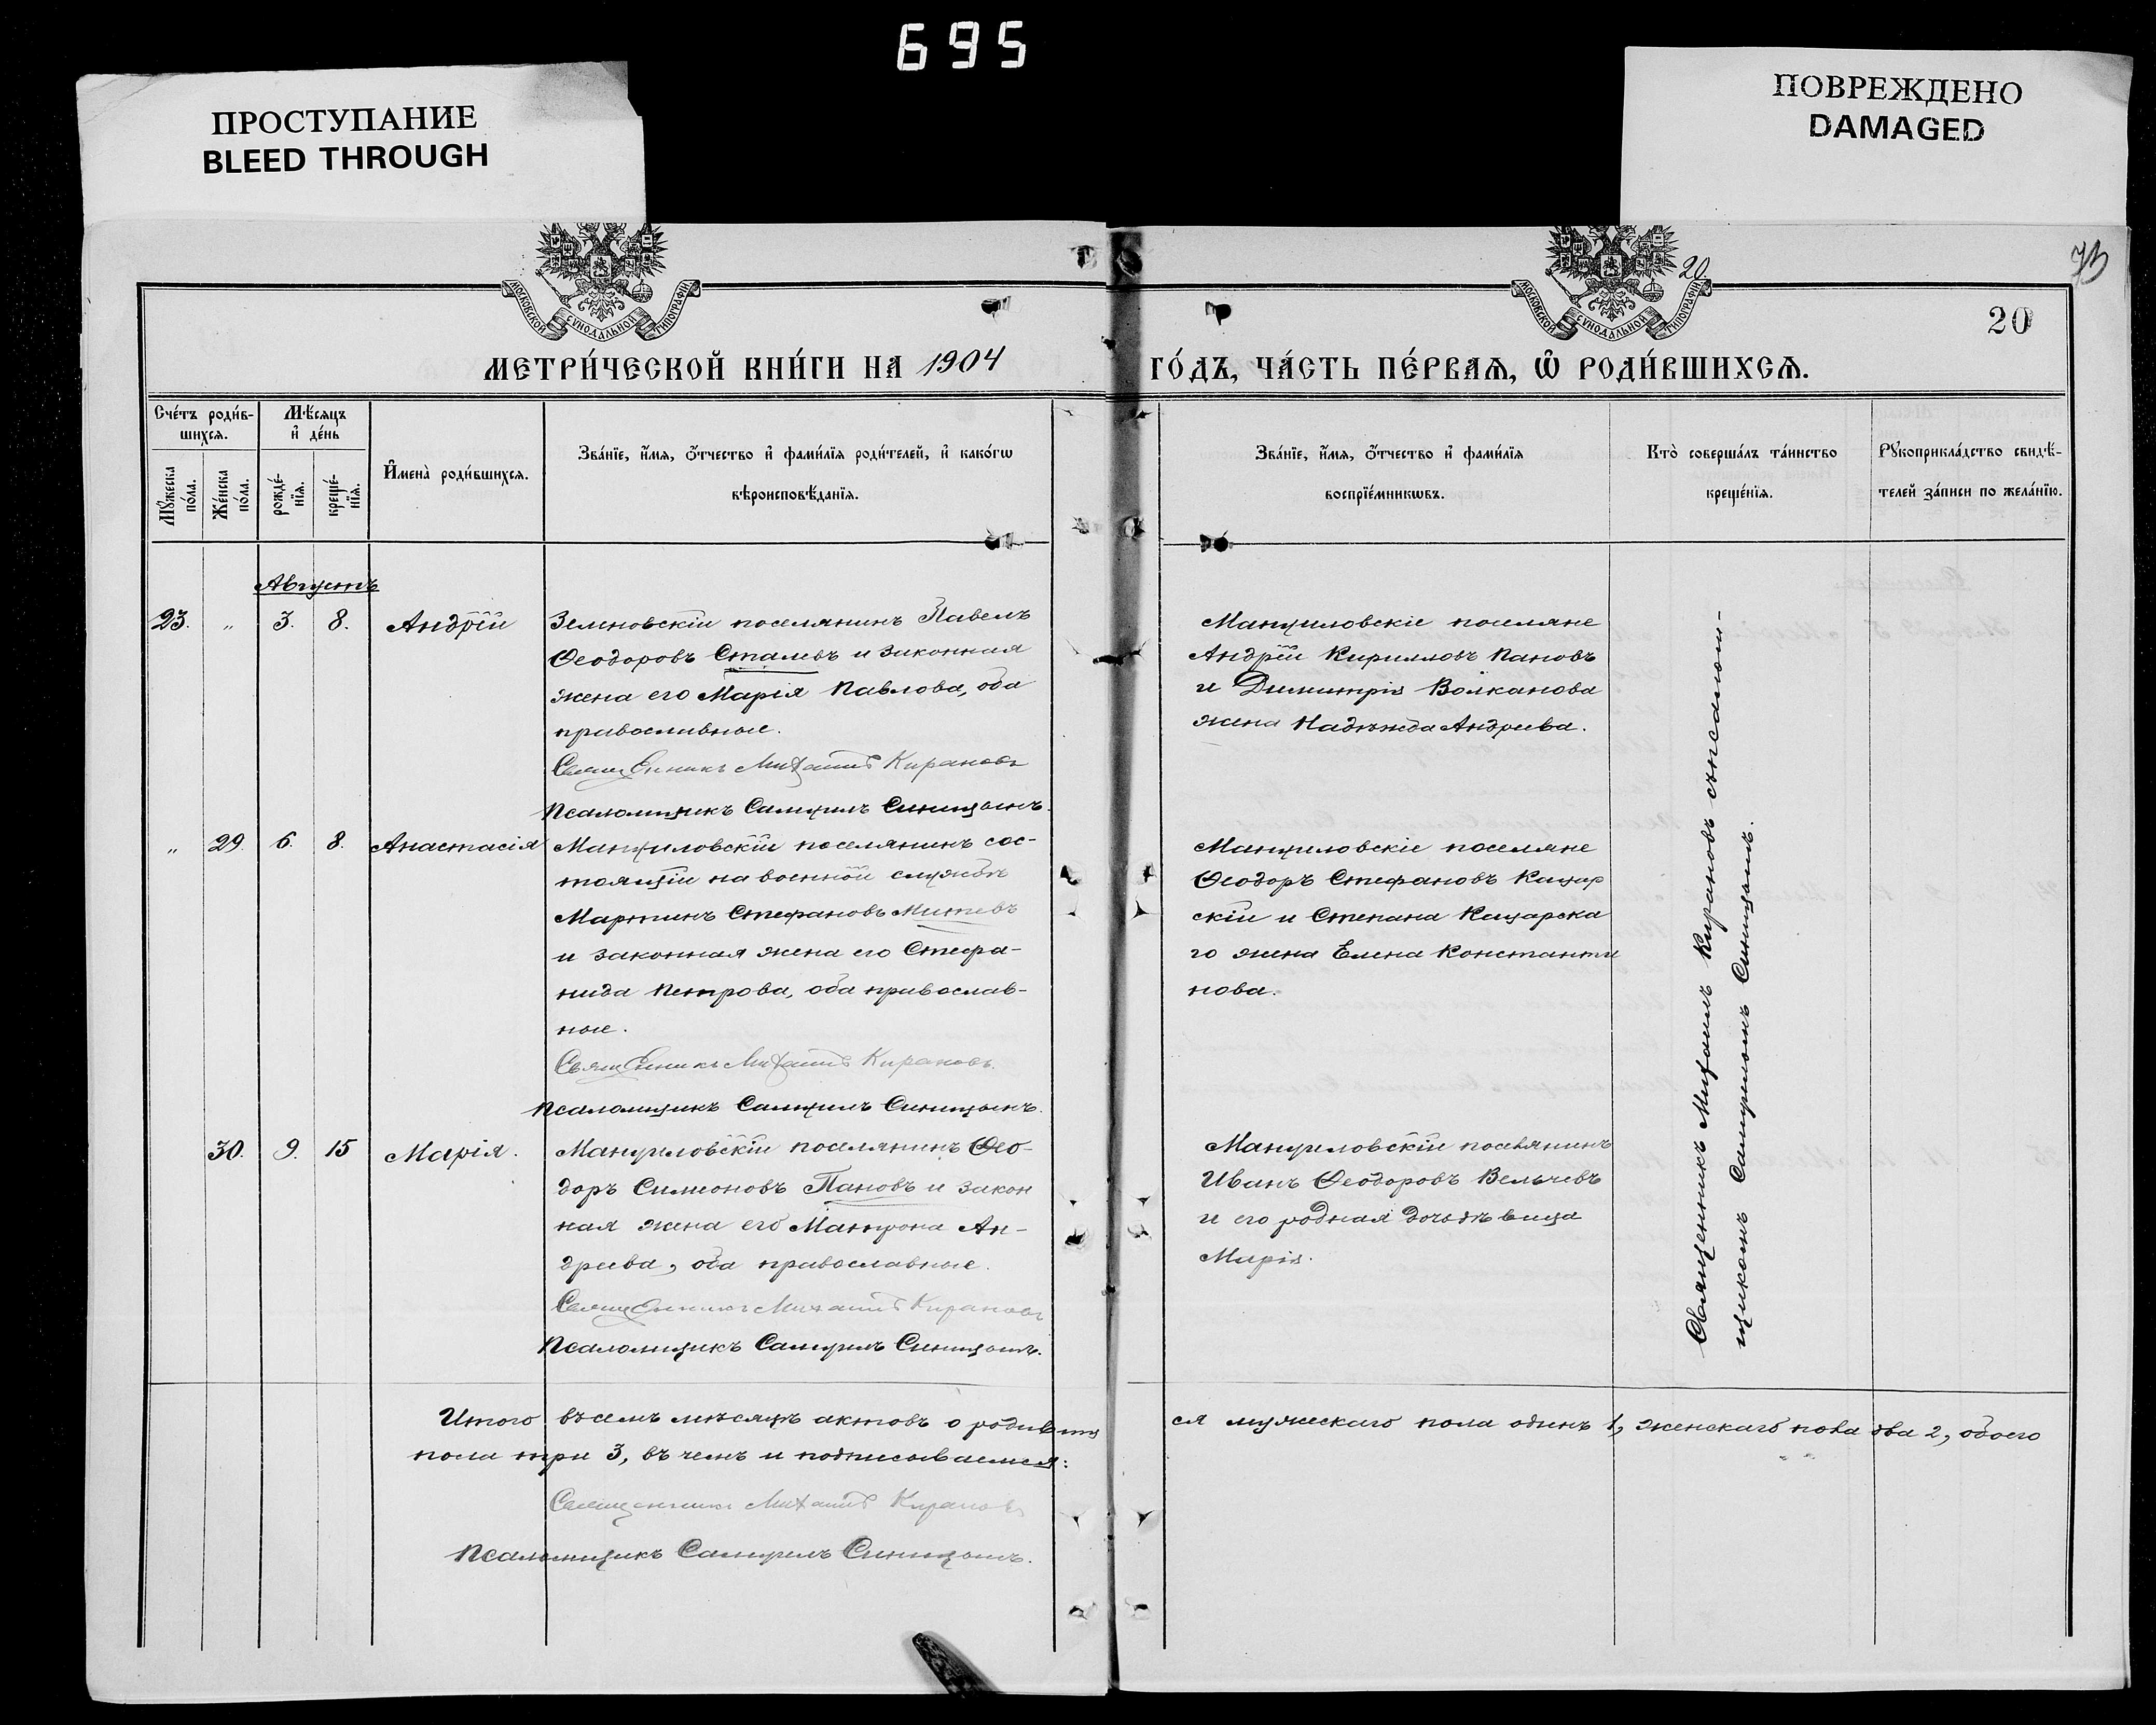 695
ПРОСТУПАНИЕ
BLEED THROUGH
ПОВРЕЖДЕНО
DAMAGED
МОСКОВСКОЙ СѴНОДАЛЬНОЙ ТИПОГРАФІИ
МОСКОВСКОЙ СѴНОДАЛЬНОЙ ТИПОГРАФІИ
20.
20
МЕТРИ́ЧЕСКОЙ КНИ́ГИ НА 1904
ГО́ДЪ, ЧА́СТЬ ПЕ́РВАѦ, Ѡ҆ РОДИ́ВШИХСѦ.
Сче́тъ роди́в-
шихсѧ.
Мѣ́сяцъ
и҆ де́нь
Мꙋ́жеска
по́ла.
Же́нска
по́ла.
рожде́-
нїѧ.
креще́-
нїѧ.
И҆мена̀ роди́вшихсѧ.
Зва́нїе, и҆́мѧ, ѻ҆́тчество и҆ фами́лїѧ роди́телей, и҆ како́гѡ
вѣроисповѣ́данїѧ.
Зва́нїе, и҆́мѧ, ѻ҆́тчество и҆ фами́лїѧ
воспрїе́мникѡвъ.
Кто̀ соверша́лъ та́инство
креще́нїѧ.
Рꙋкоприкла́дство свидѣ́-
телей за́писи по жела́нїю.
Августъ
23. „ 3. 8. Андрій
Зеленовскій поселянинъ Павелъ
Ѳеодоровъ Сталевъ и законная
жена его Марія Павлова, оба
православные.
Священникъ Михаилъ Кирановъ
Псаломщикъ Самуилъ Синицынъ.
Мануиловскіе поселяне
Андрій Кирилловъ Пановъ
и Димитрія Волканова
жена Надѣжда Андреева.
„ 29. 6. 8. Анастасія
Мануиловскій поселянинъ сос-
тоящій на военной службѣ
Мартинъ Стефановъ Митевъ
и законная жена его Стефа-
нида Петрова, оба православ-
ные.
Священникъ Михаилъ Кирановъ.
Псаломщикъ Самуилъ Синицынъ.
Мануиловскіе поселяне
Ѳеодоръ Стефановъ Кацар
скій и Степана Кацарска
го жена Елена Константи
нова.
30. 9. 15 Марія.
Мануиловскій поселянинъ Ѳео-
доръ Симеоновъ Пановъ и закон
ная жена его Матрона Ан-
дреева, оба православные.
Священникъ Михаилъ Кирановъ
Псаломщикъ Самуилъ Синицынъ.
Мануиловскій поселянинъ
Иванъ Ѳеодоровъ Вельчевъ
и его родная дочь дѣвица
Марія.
Священникъ Михаилъ Кирановъ съ псалом-
щикомъ Самуиломъ Синицынъ.
Итого въ семъ мѣсяцѣ актовъ о родивш
ся мужескаго пола одинъ 1, женскаго пола два 2, обоего
пола три 3, въ чемъ и подписываемся:
Священникъ Михаилъ Кирановъ
Псаломщикъ Самуилъ Синицынъ.